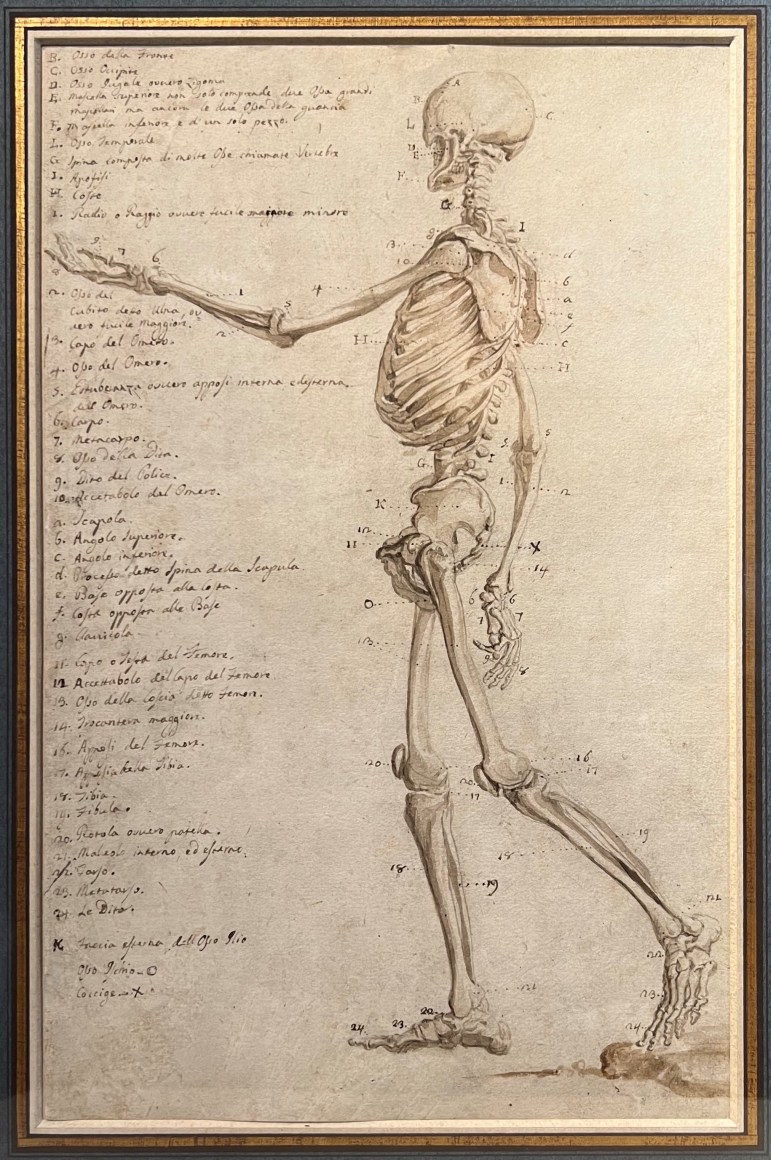 B. Osso della Fronte
C. Osso Occipite
D. Osso Jugale ovvero Zigoma
E. Mascella Superiore non solo comprende due Ossa grandi
ma ancora le due Ossa della guancia
F. Mascella inferiore è d'un solo pezzo.
L. Osso Temporale
G. Spina composta di molte Osse chiamate Vertebre
I. Apofisi
H. Coste
1. Radio o Raggio ovvero fucile minore
2. Osso del
Cubito detto Ulna, ov
vero fucile maggiore.
3. Capo del Omero.
4. Osso del Omero.
5. ovvero apposi interna ed esterna
del Omero.
6. Carpo.
7. Metacarpo.
8. Osso della Dita.
9. Dito del Police.
10. Accetabolo del Omero.
a. Scapola.
b. Angolo Superiore.
c. Angolo inferiore.
d. Processo detto Spina della Scapula
e. Base opposta alla Costa.
f. Costa opposta alla Base
g. Clavicola
11. Capo o Testa del Femore.
12 Accettabolo del Capo del Femore
13. Osso della Coscia detto Femore.
14. Trocantera maggiore.
16. del Femore.
17. Tibia.
18. Tibia.
19. Fibula.
20. Rotola ovvero patella.
21. Maleolo interno, ed esterno.
22. Tarso.
23. Metatarso.
24. Le Dita.
K Faccia esterna dell'Osso Ilio
Osso Ischio - O
Coccige - X
A
B
C
L
D
E
F
G
I
3
g
10
d
b
a
e
f
c
H
H
9
7
6
8
1
4
5
2
5
5
G
I
1
2
K
12
11
X
14
O
6
6
7
7
9
8
13
20
16
17
20
17
19
18
18
19
21
22
21
23
24
24
23
22